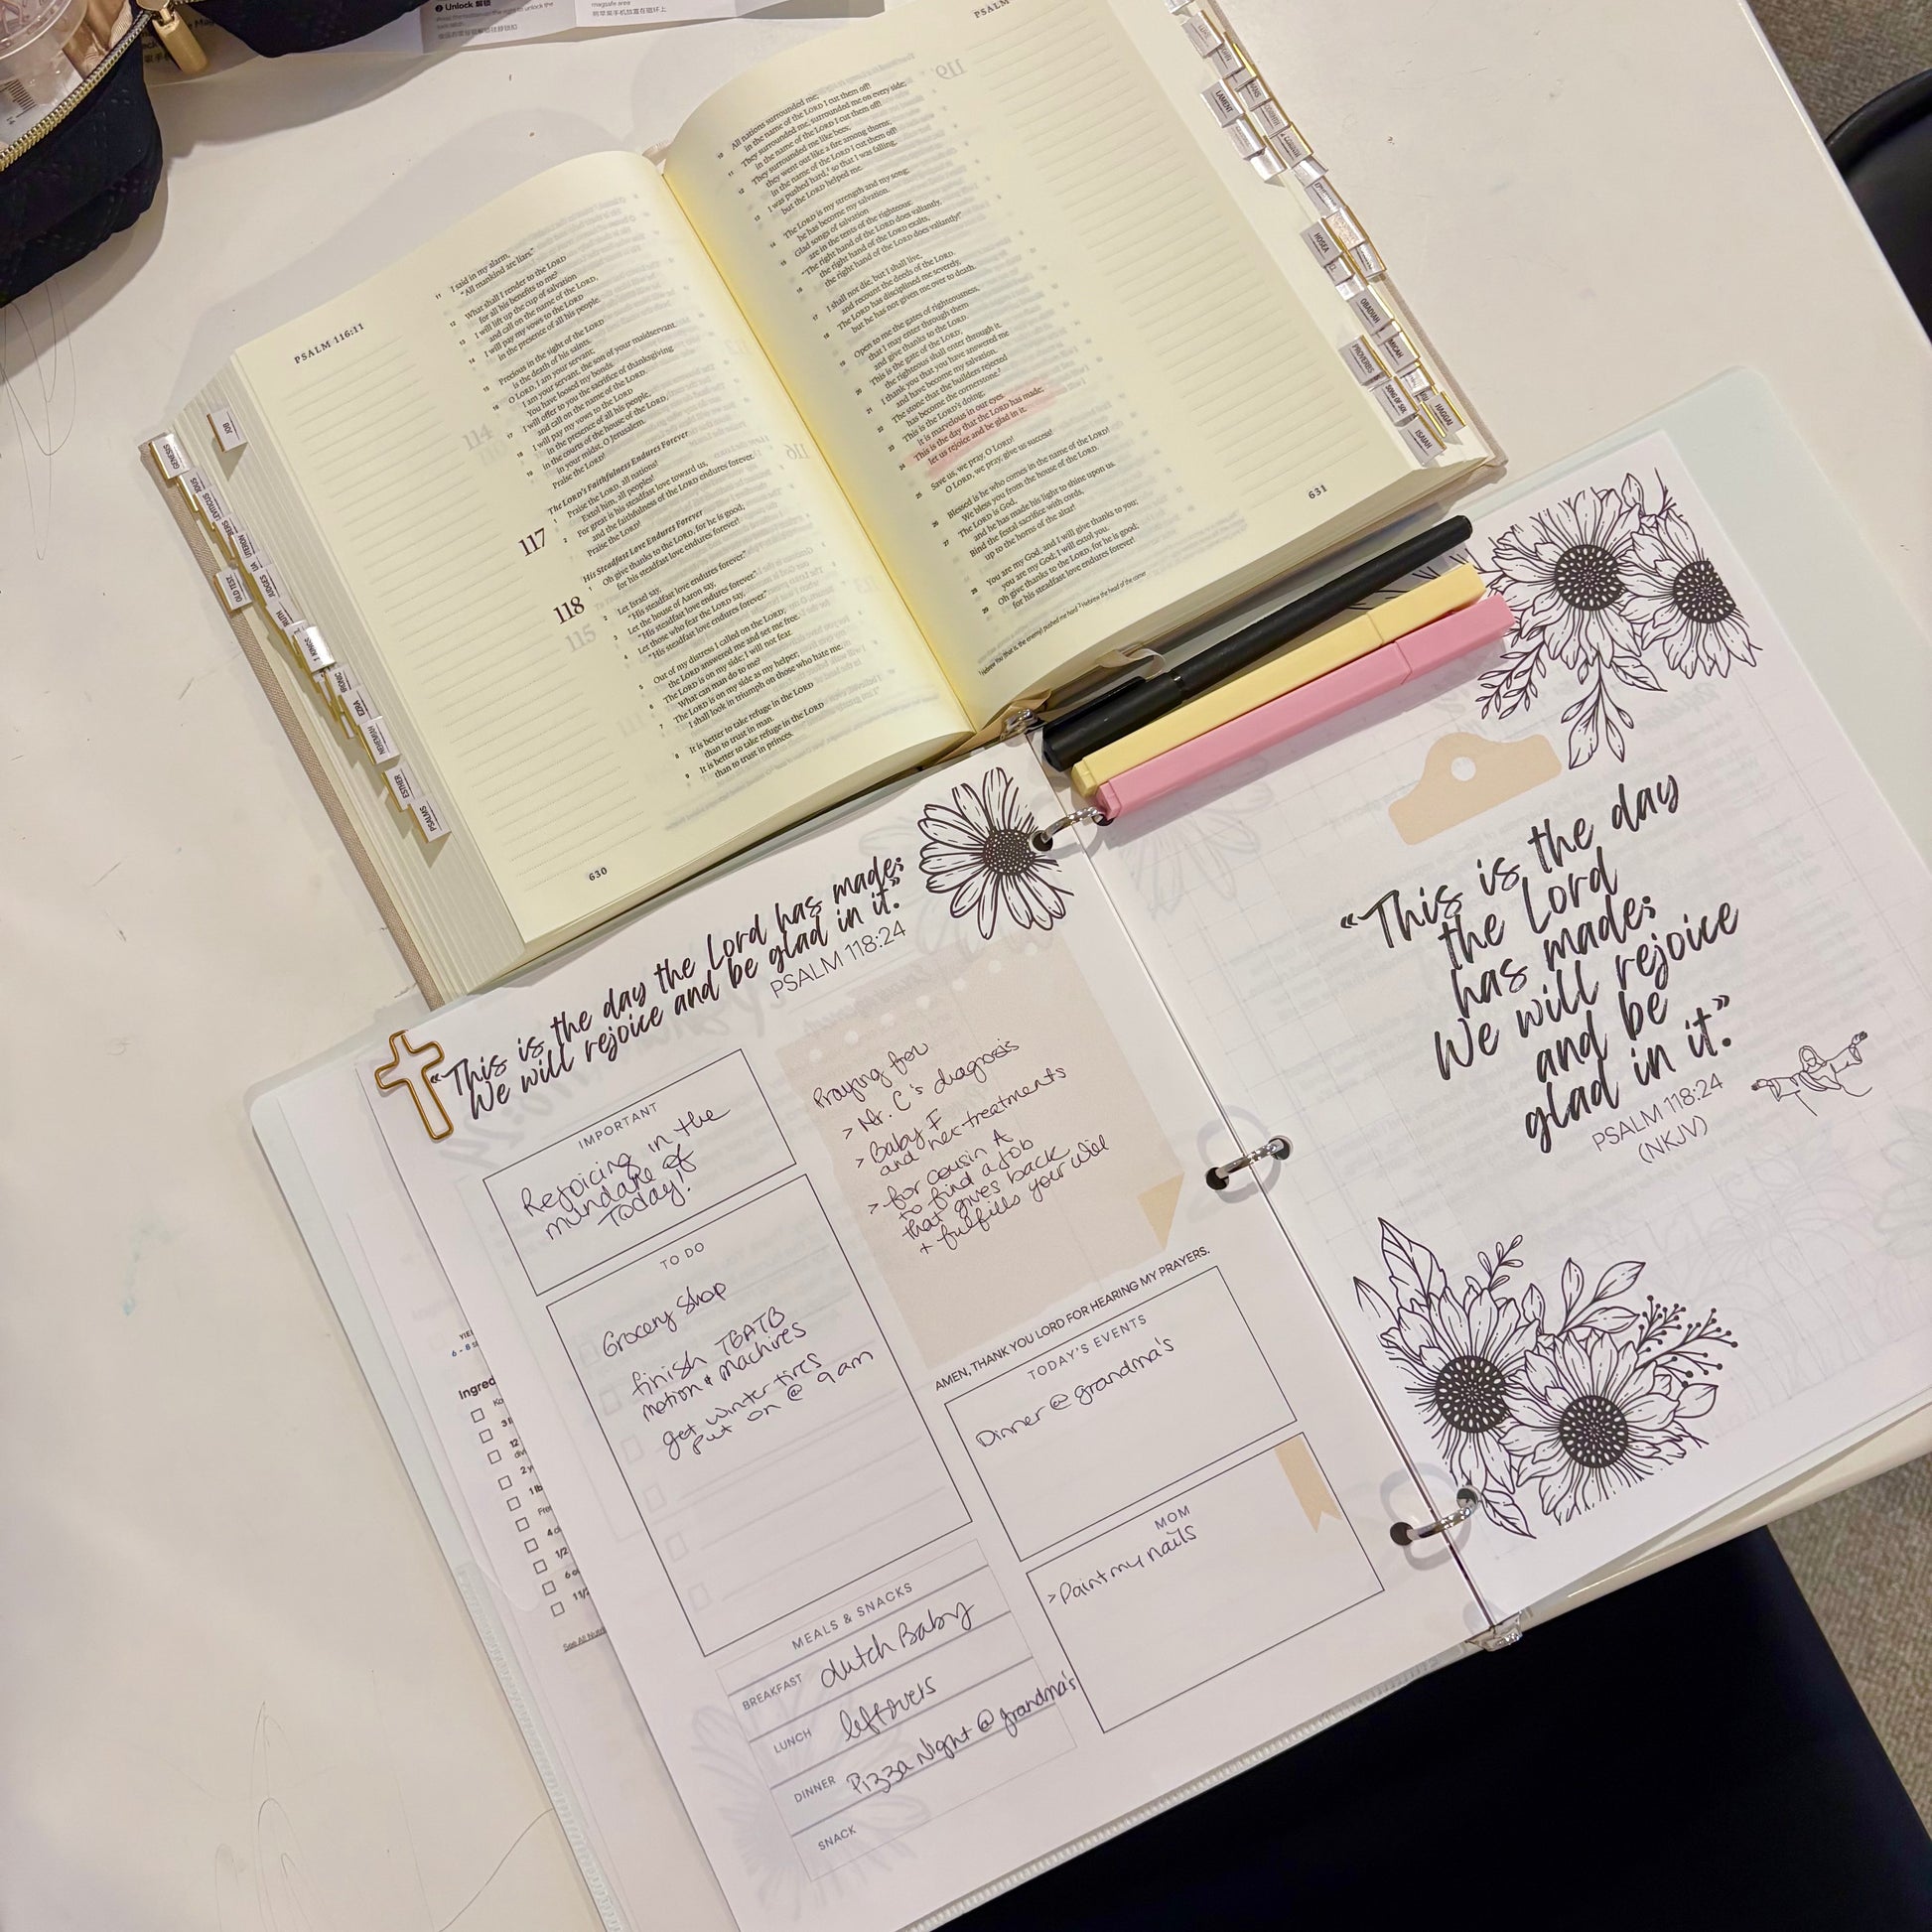 Unlock
PSALM
PSALM 116:11
11 I said in my alarm,
"All mankind are liars."
12 What shall I render to the LORD
for all his benefits to me?
13 I will lift up the cup of salvation
and call on the name of the LORD,
14 I will pay my vows to the LORD
in the presence of all his people.
15 Precious in the sight of the LORD
is the death of his saints.
16 O LORD, I am your servant;
I am your servant, the son of your maidservant.
You have loosed my bonds.
17 I will offer to you the sacrifice of thanksgiving
and call on the name of the LORD.
18 I will pay my vows to the LORD
in the presence of all his people,
19 in the courts of the house of the LORD,
in your midst, O Jerusalem.
Praise the LORD!
The LORD's Faithfulness Endures Forever
117
1 Praise the LORD, all nations!
Extol him, all peoples!
2 For great is his steadfast love toward us,
and the faithfulness of the LORD endures forever.
Praise the LORD!
His Steadfast Love Endures Forever
118
1 Oh give thanks to the LORD, for he is good;
for his steadfast love endures forever!
2 Let Israel say,
"His steadfast love endures forever."
3 Let the house of Aaron say,
"His steadfast love endures forever."
4 Let those who fear the LORD say,
"His steadfast love endures forever."
5 Out of my distress I called on the LORD;
the LORD answered me and set me free.
6 The LORD is on my side; I will not fear.
What can man do to me?
7 The LORD is on my side as my helper;
I shall look in triumph on those who hate me.
8 It is better to take refuge in the LORD
than to trust in man.
9 It is better to take refuge in the LORD
than to trust in princes.
630
10 All nations surrounded me;
in the name of the LORD I cut them off!
11 They surrounded me, surrounded me on every side;
in the name of the LORD I cut them off!
12 They surrounded me like bees;
they went out like a fire among thorns;
in the name of the LORD I cut them off!
13 I was pushed hard, so that I was falling,
but the LORD helped me.
14 The LORD is my strength and my song;
he has become my salvation.
15 Glad songs of salvation
are in the tents of the righteous:
"The right hand of the LORD does valiantly,
16 the right hand of the LORD exalts,
the right hand of the LORD does valiantly!"
17 I shall not die, but I shall live,
and recount the deeds of the LORD.
18 The LORD has disciplined me severely,
but he has not given me over to death.
19 Open to me the gates of righteousness,
that I may enter through them
and give thanks to the LORD.
20 This is the gate of the LORD;
the righteous shall enter through it.
21 I thank you that you have answered me
and have become my salvation.
22 The stone that the builders rejected
has become the cornerstone.
23 This is the LORD's doing;
it is marvelous in our eyes.
24 This is the day that the LORD has made;
let us rejoice and be glad in it.
25 Save us, we pray, O LORD!
O LORD, we pray, give us success!
26 Blessed is he who comes in the name of the LORD!
We bless you from the house of the LORD.
27 The LORD is God,
and he has made his light to shine upon us.
Bind the festal sacrifice with cords,
up to the horns of the altar!
28 You are my God, and I will give thanks to you;
you are my God; I will extol you.
29 Oh give thanks to the LORD, for he is good;
for his steadfast love endures forever!
631
GENESIS
JOB
OLD TEST
JUDGES
RUTH
1 KINGS
EZRA
NEHEMIAH
ESTHER
PSALMS
LAMENT
HOSEA
OBADIAH
MICAH
PROVERBS
HAGGAI
ISAIAH
"This is the day the Lord has made;
We will rejoice and be glad in it."
PSALM 118:24
IMPORTANT
Rejoicing in the
mundane of
Today!
TO DO
Grocery Shop
finish TBATB
motion & machines
get winter tires
put on @ 9am
MEALS & SNACKS
BREAKFAST dutch Baby
LUNCH leftovers
DINNER Pizza Night @ grandma's
SNACK
Praying for
> Mr. C's diagnosis
> Baby F
and her treatments
> for cousin A
to find a job
that gives back
+ fulfills your will
AMEN, THANK YOU LORD FOR HEARING MY PRAYERS.
TODAY'S EVENTS
Dinner @ grandma's
MOM
> Paint my nails
"This is the day
the Lord
has made;
We will rejoice
and be
glad in it."
PSALM 118:24
(NKJV)